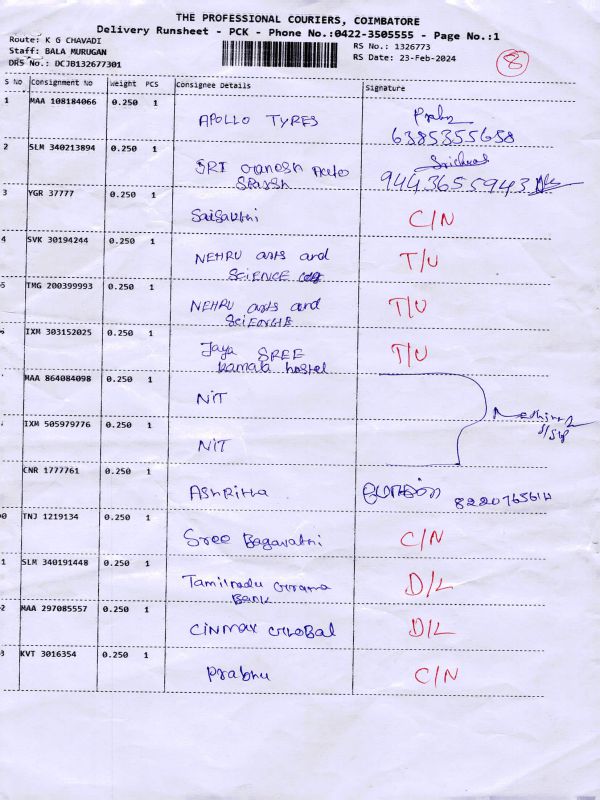 THE PROFESSIONAL COURIERS, COIMBATORE
Delivery Runsheet - PCK - Phone No.:0422-3505555 - Page No.:1
Route: K G CHAVADI
Staff: BALA MURUGAN
DRS No.: DCJB132677301
RS No.: 1326773
RS Date: 23-Feb-2024
8
S No Consignment No Weight PCS Consignee Details Signature
1 MAA 108184066 0.250 1
APOLLO TYRES
6385355658
2 SLM 340213894 0.250 1
SRI Ganesh Auto
9443655943
3 YGR 37777 0.250 1
C/N
4 SVK 30194244 0.250 1
NEHRU arts and T/U
SCIENCE
5 TMG 200399993 0.250 1
NEHRU arts and T/U
IXM 303152025 0.250 1
Jaya SREE T/U
kamala hostel
MAA 864084098 0.250 1
NIT
IXM 505979776 0.250 1
NIT
CNR 1777761 0.250 1
0 TNJ 1219134 0.250 1
Sree Bagavathi C/N
1 SLM 340191448 0.250 1
Tamilnadu Grama D/L
Bank
2 MAA 297085557 0.250 1
CINMAX GLOBAL D/L
3 KVT 3016354 0.250 1
Prabhu C/N